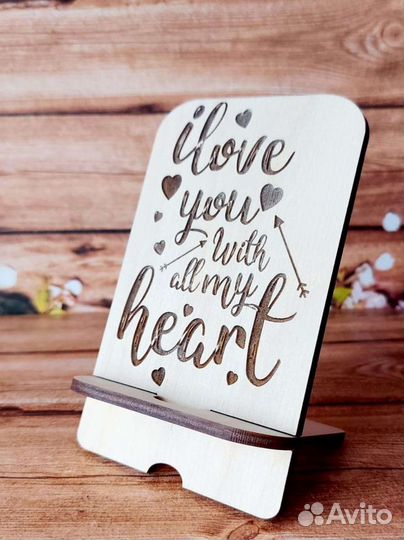 i love
you
with
all my
heart
Avito